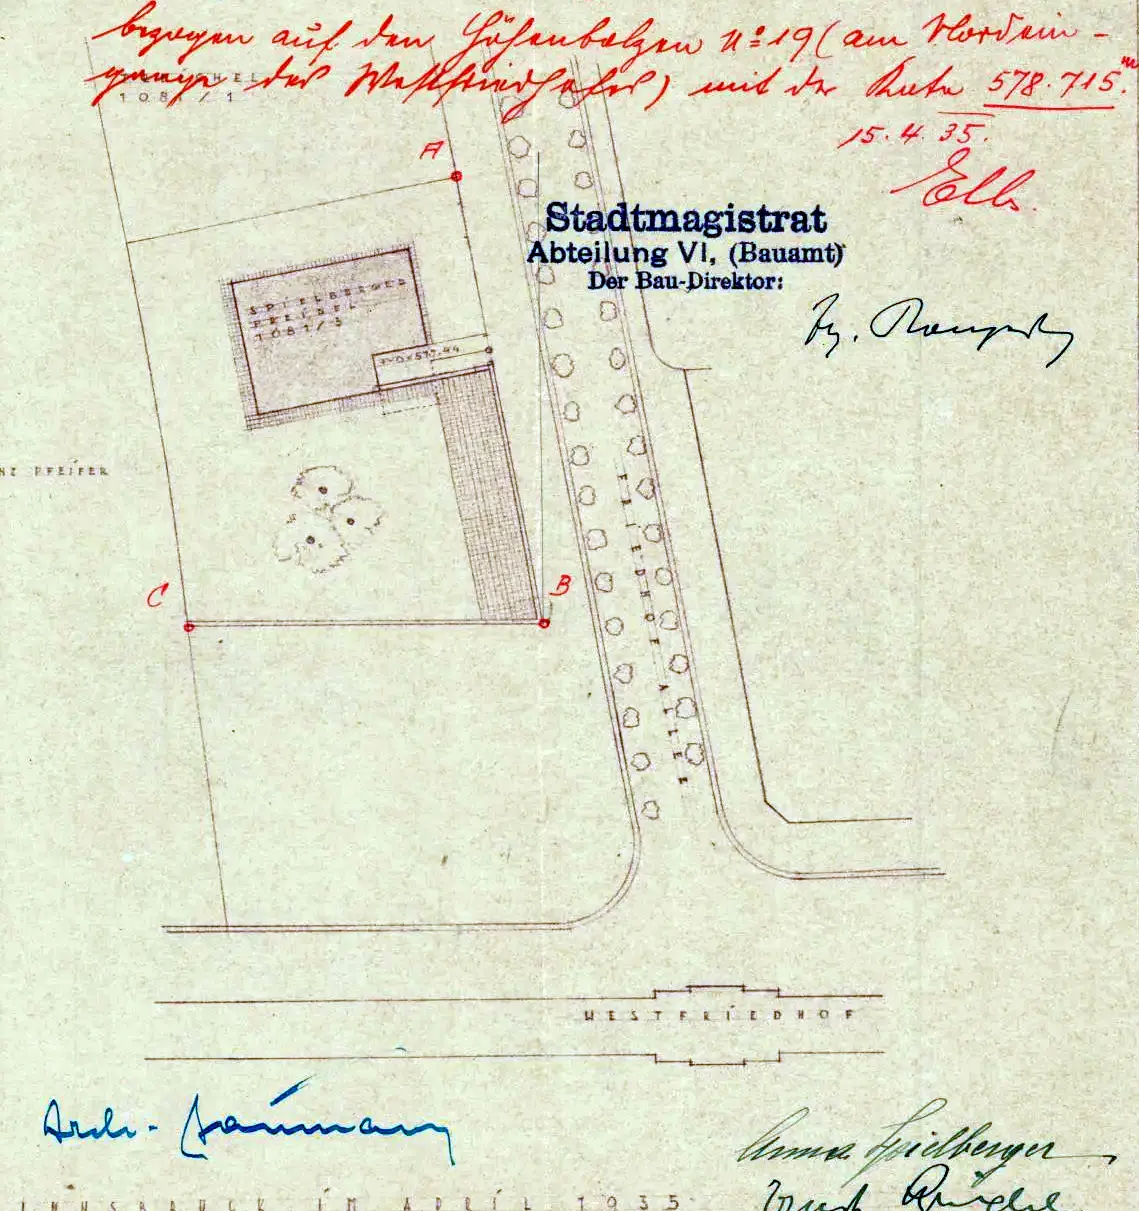 bezogen auf den Höhenbolzen No 19 (am Nordein-
gange des Westfriedhofes) mit der Kote 578.715 m.
1081/1
15.4.35.
A
Stadtmagistrat
Abteilung VI, (Bauamt)
Der Bau-Direktor:
SPIELBERGER
1081/3
PFEIFER
C
B
FRIEDHOF ALLEE
WESTFRIEDHOF
Arch. Baumann
Anna Spielberger
INNSBRUCK IM APRIL 1935